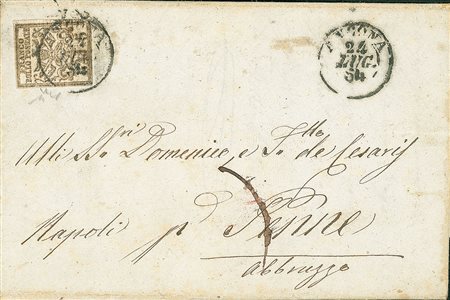 ANCONA
24
LUG.
54
Alli SS.ri Domenico, e F.llo de Cesaris
Napoli p Penne
Abbruzzo